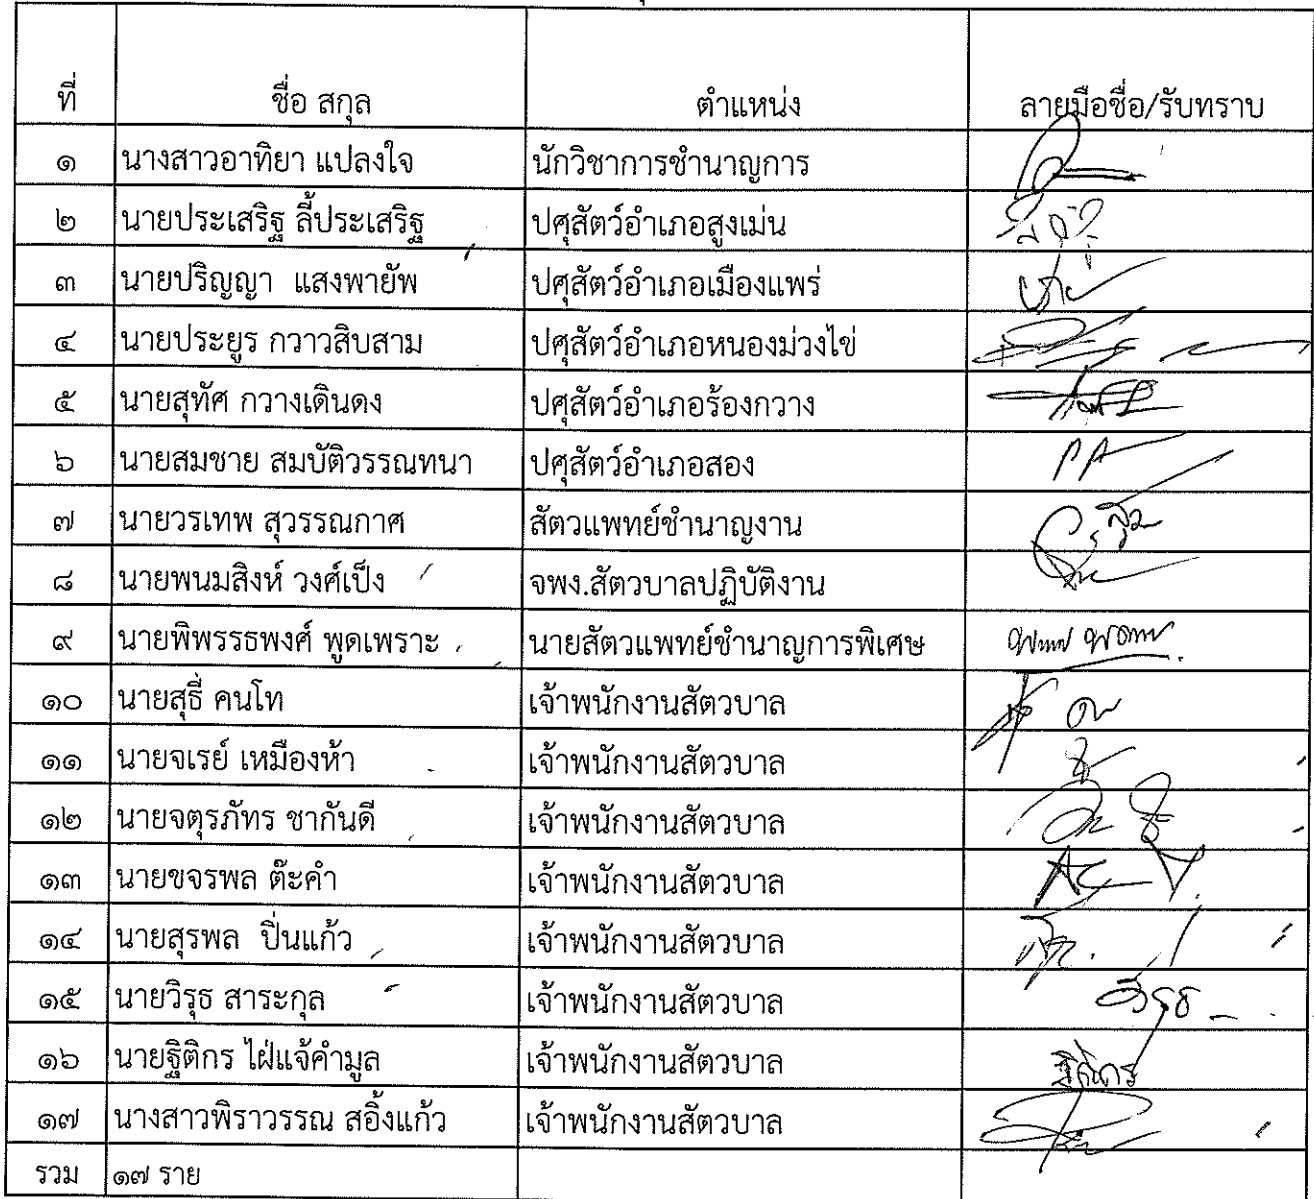 ที่ ชื่อ สกุล ตำแหน่ง ลายมือชื่อ/รับทราบ
๑ นางสาวอาทิยา แปลงใจ นักวิชาการชำนาญการ
๒ นายประเสริฐ ลี้ประเสริฐ ปศุสัตว์อำเภอสูงเม่น
๓ นายปริญญา แสงพายัพ ปศุสัตว์อำเภอเมืองแพร่
๔ นายประยูร กวาวสิบสาม ปศุสัตว์อำเภอหนองม่วงไข่
๕ นายสุทัศ กวางเดินดง ปศุสัตว์อำเภอร้องกวาง
๖ นายสมชาย สมบัติวรรณทนา ปศุสัตว์อำเภอสอง
๗ นายวรเทพ สุวรรณกาศ สัตวแพทย์ชำนาญงาน
๘ นายพนมสิงห์ วงศ์เป็ง จพง.สัตวบาลปฏิบัติงาน
๙ นายพิพรรธพงศ์ พูดเพราะ นายสัตวแพทย์ชำนาญการพิเศษ
๑๐ นายสุธี่ คนโท เจ้าพนักงานสัตวบาล
๑๑ นายจเรย์ เหมืองห้า เจ้าพนักงานสัตวบาล
๑๒ นายจตุรภัทร ชากันดี เจ้าพนักงานสัตวบาล
๑๓ นายขจรพล ต๊ะคำ เจ้าพนักงานสัตวบาล
๑๔ นายสุรพล ปิ่นแก้ว เจ้าพนักงานสัตวบาล
๑๕ นายวิรุธ สาระกุล เจ้าพนักงานสัตวบาล วิรุธ
๑๖ นายฐิติกร ไฝ่แจ้คำมูล เจ้าพนักงานสัตวบาล ฐิติกร
๑๗ นางสาวพิราวรรณ สอิ้งแก้ว เจ้าพนักงานสัตวบาล
รวม ๑๗ ราย